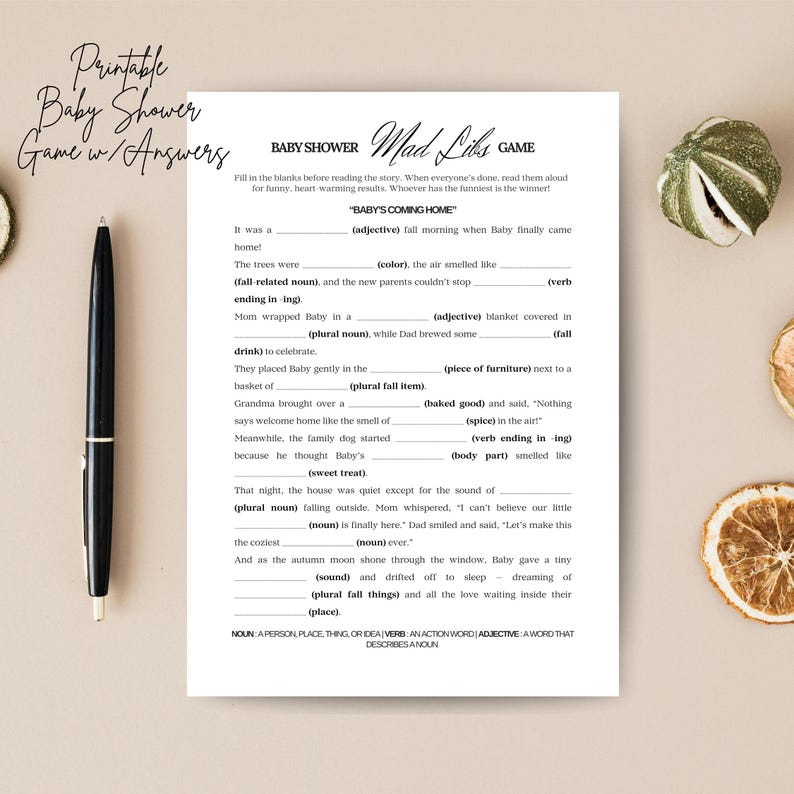 Printable
Baby Shower
Game w/Answers
BABY SHOWER Mad Libs GAME
Fill in the blanks before reading the story. When everyone's done, read them aloud
for funny, heart-warming results. Whoever has the funniest is the winner!
"BABY'S COMING HOME"
It was a _______________ (adjective) fall morning when Baby finally came
home!
The trees were _______________ (color), the air smelled like _______________
(fall-related noun), and the new parents couldn't stop _______________ (verb
ending in -ing).
Mom wrapped Baby in a _______________ (adjective) blanket covered in
_______________ (plural noun), while Dad brewed some _______________ (fall
drink) to celebrate.
They placed Baby gently in the _______________ (piece of furniture) next to a
basket of _______________ (plural fall item).
Grandma brought over a _______________ (baked good) and said, "Nothing
says welcome home like the smell of _______________ (spice) in the air!"
Meanwhile, the family dog started _______________ (verb ending in -ing)
because he thought Baby's _______________ (body part) smelled like
_______________ (sweet treat).
That night, the house was quiet except for the sound of _______________
(plural noun) falling outside. Mom whispered, "I can't believe our little
_______________ (noun) is finally here." Dad smiled and said, "Let's make this
the coziest _______________ (noun) ever."
And as the autumn moon shone through the window, Baby gave a tiny
_______________ (sound) and drifted off to sleep — dreaming of
_______________ (plural fall things) and all the love waiting inside their
_______________ (place).
NOUN : A PERSON, PLACE, THING, OR IDEA | VERB : AN ACTION WORD | ADJECTIVE : A WORD THAT
DESCRIBES A NOUN